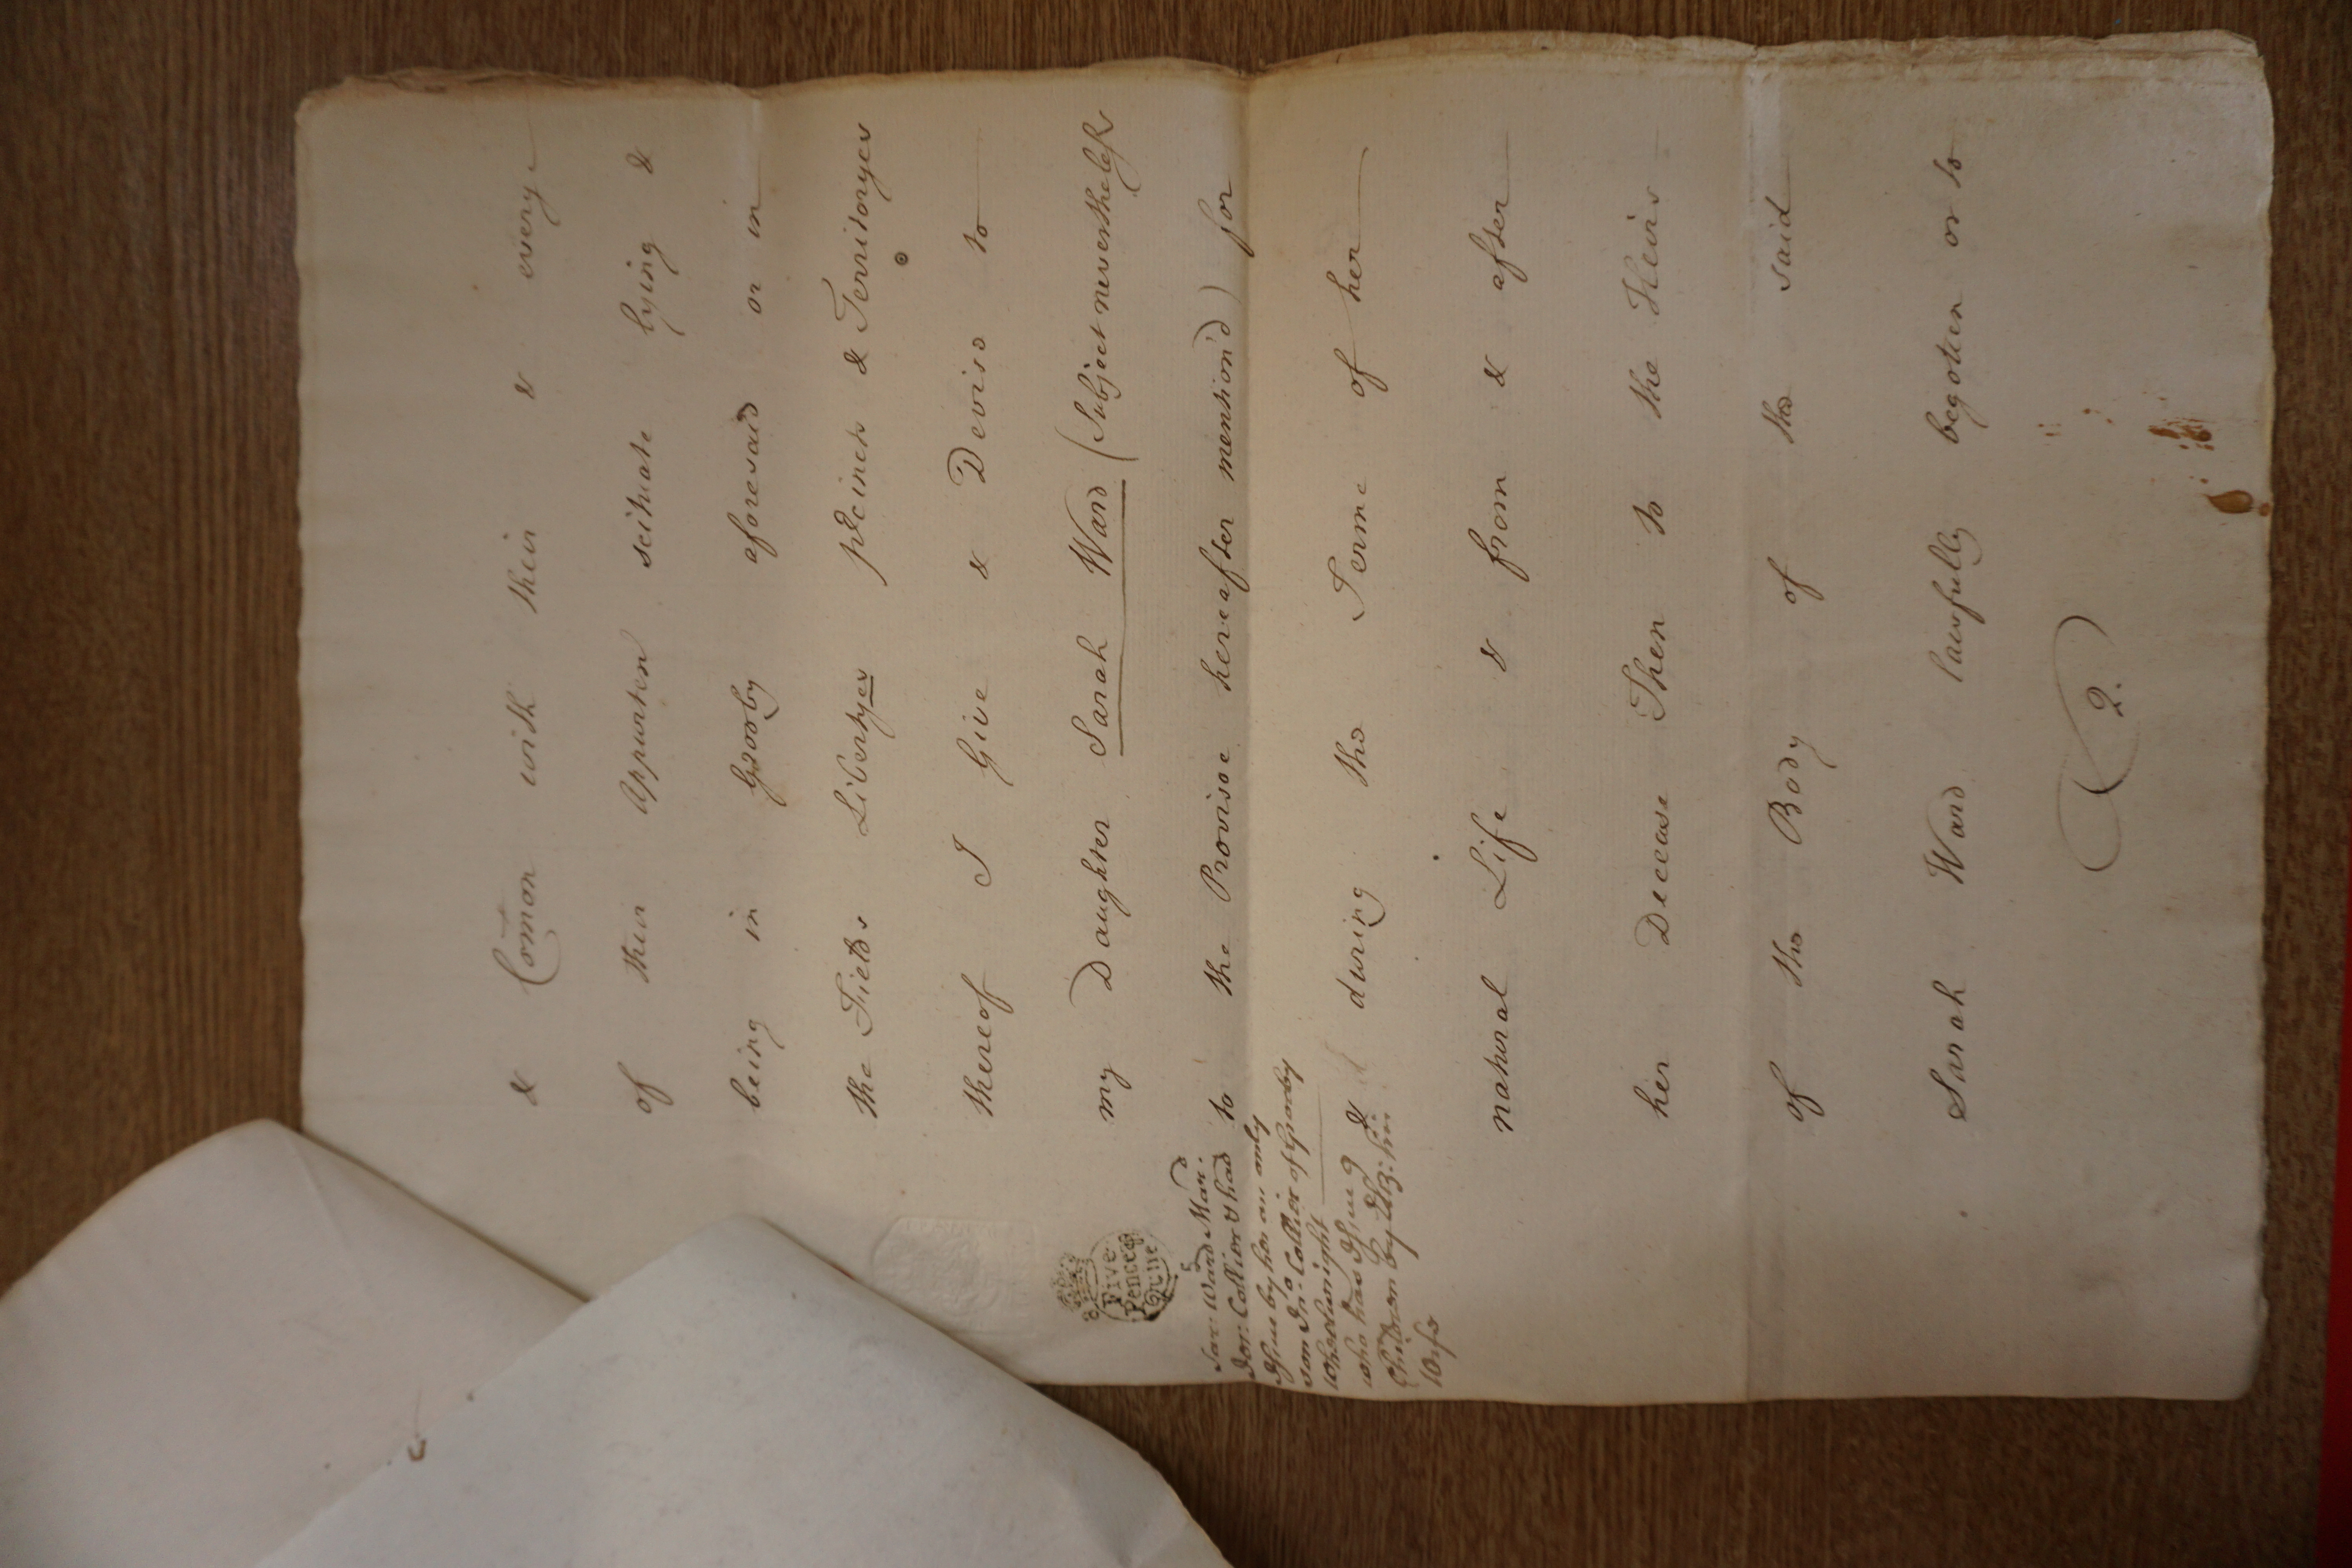 & Com̄on with their & every
of their Appurten scituate lying &
being in Grooby aforesaid or in
the Fields Libertyes p̱cincts & Territoryes
thereof I Give & Devise to
my Daughter Sarah Ward (Subject nevertheless
to the Provisoe hereafter mention'd) for
& during the Terme of her
natural Life & from & after
her Decease Then to the Heirs
of the Body of the said
Sarah Ward lawfully begotten or to
(2.)
Five
Pence ⅌
Quire
Sar: Ward Mar:
Jos: Collier & had
Issue by her an only
son Jno Collier of Grooby
Wheelwright
who has Issue 9
Children by Eliz: his
Wife